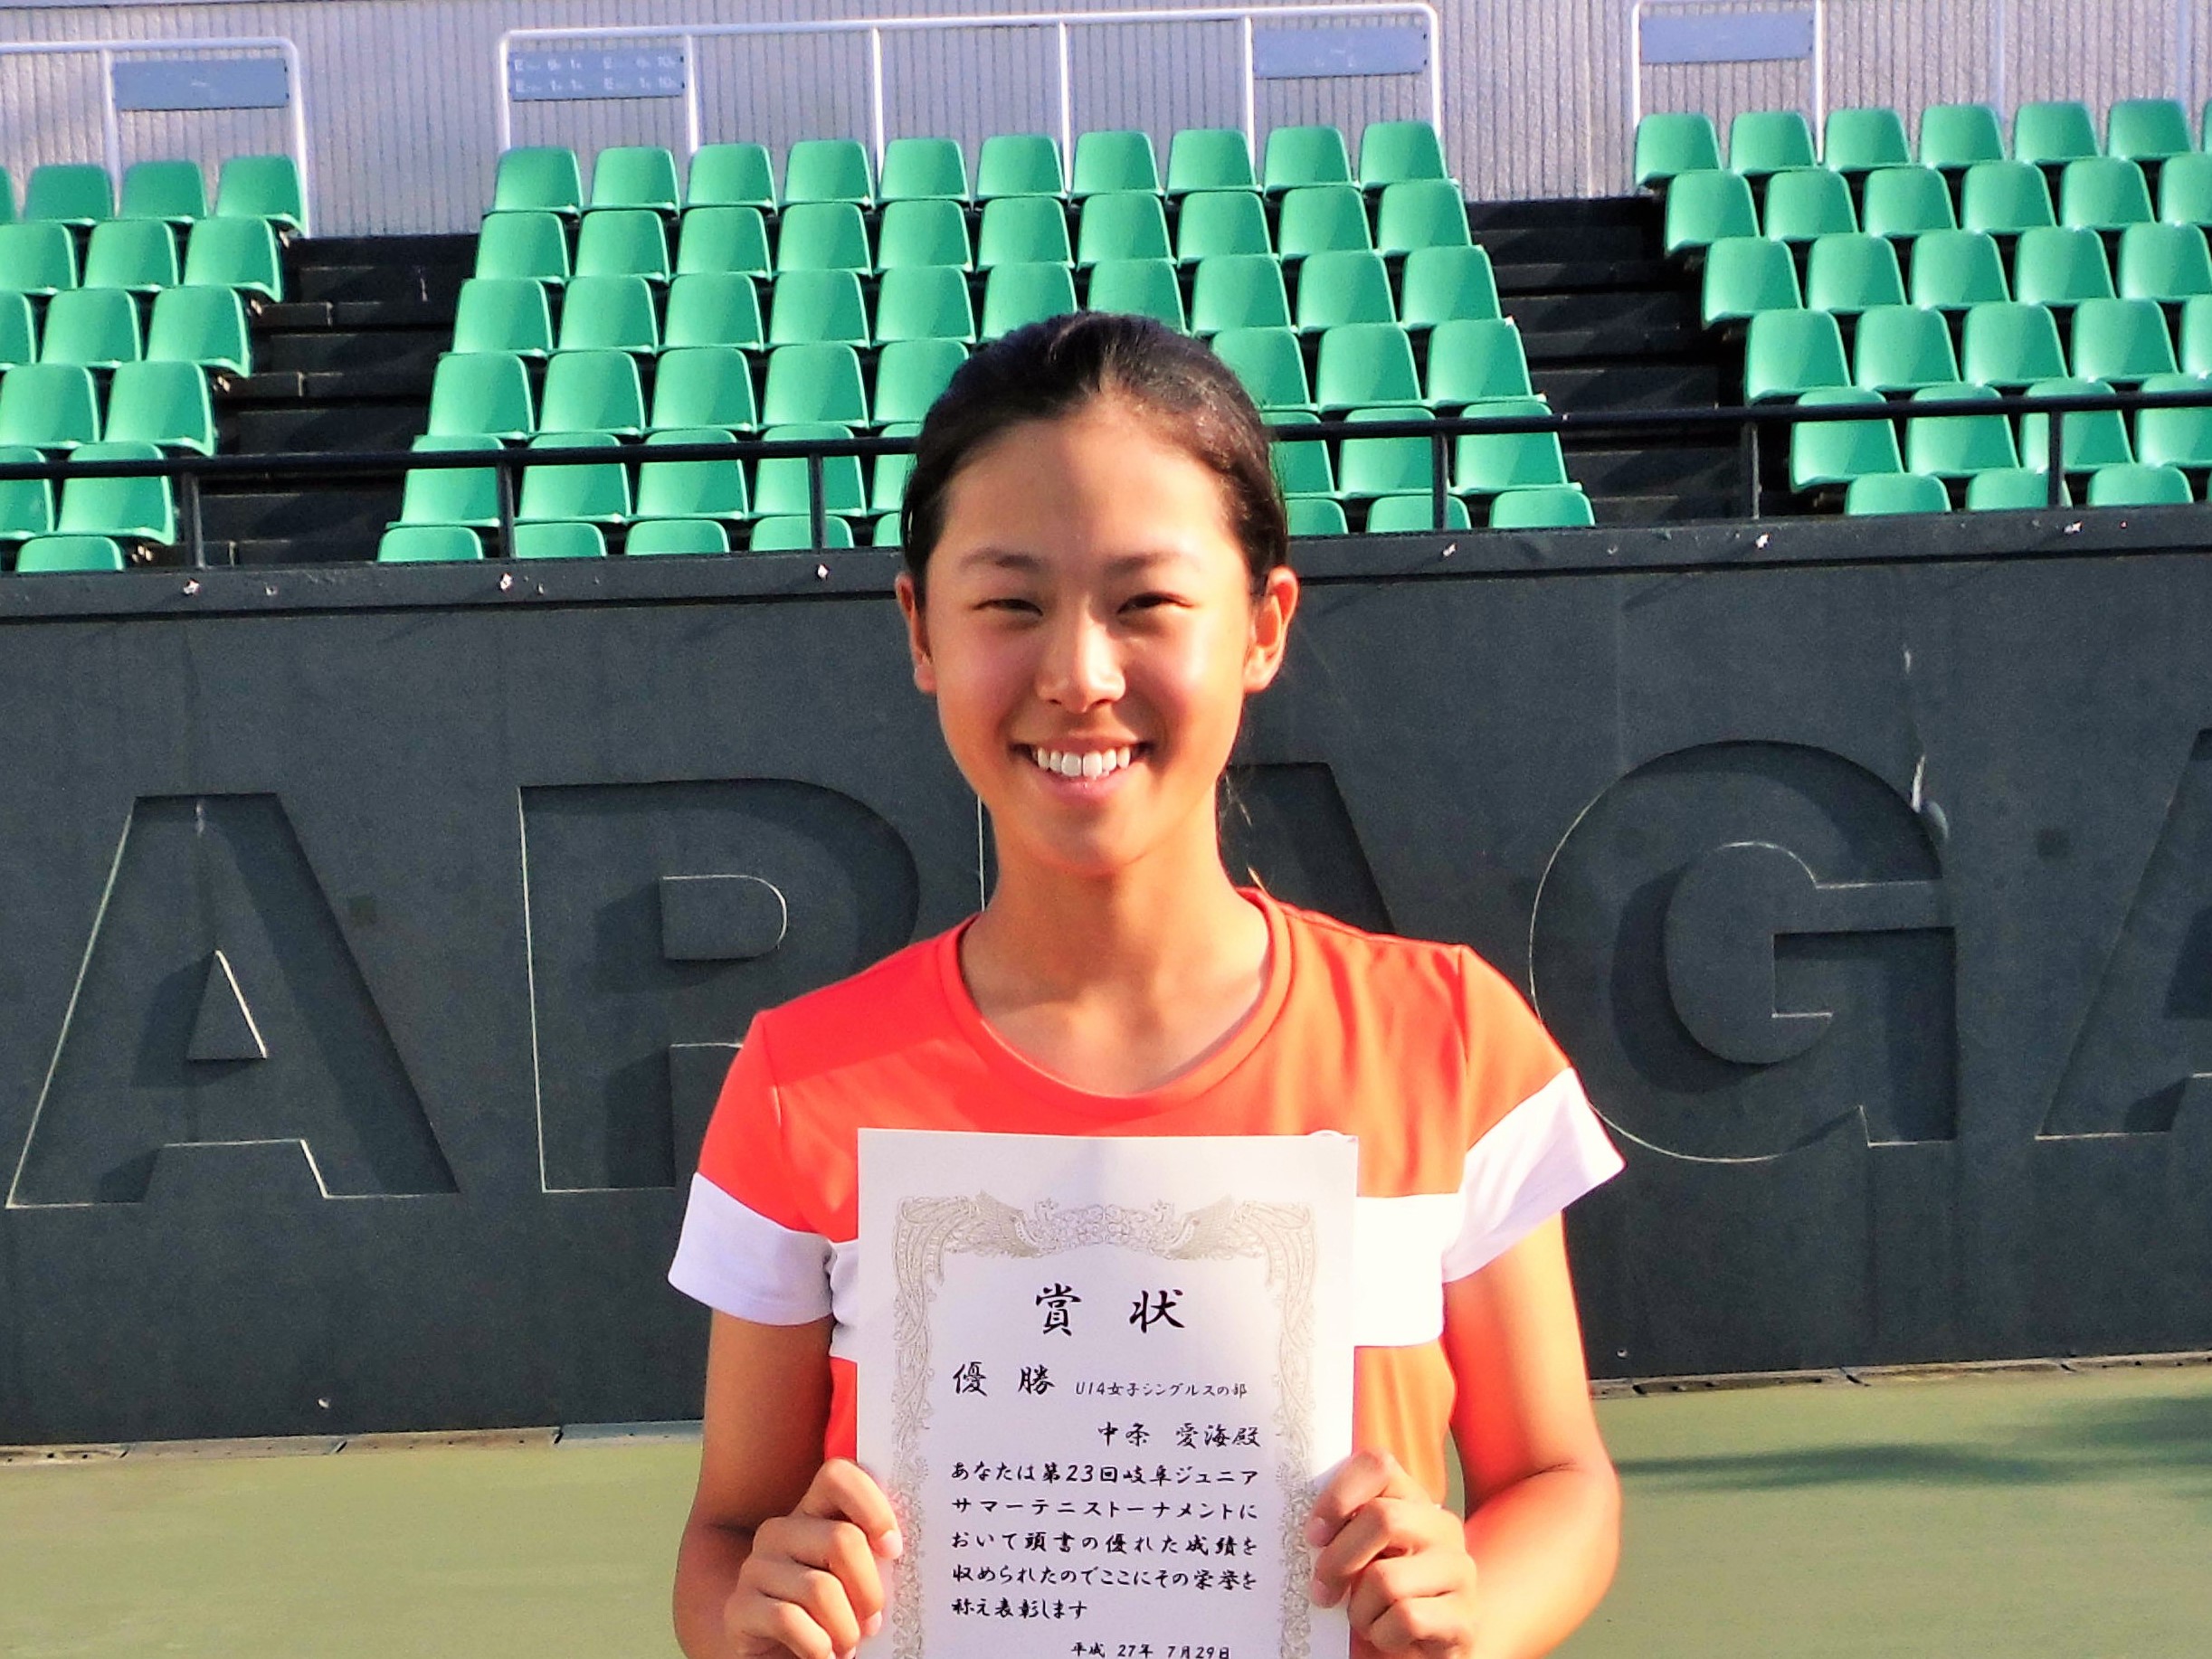 A R A G A
賞 状
優 勝 U14女子シングルスの部
中条 愛海殿
あなたは第23回岐阜ジュニア
サマーテニストーナメントに
おいて頭書の優れた成績を
収められたのでここにその栄誉を
称え表彰します
平成 27年 7月29日